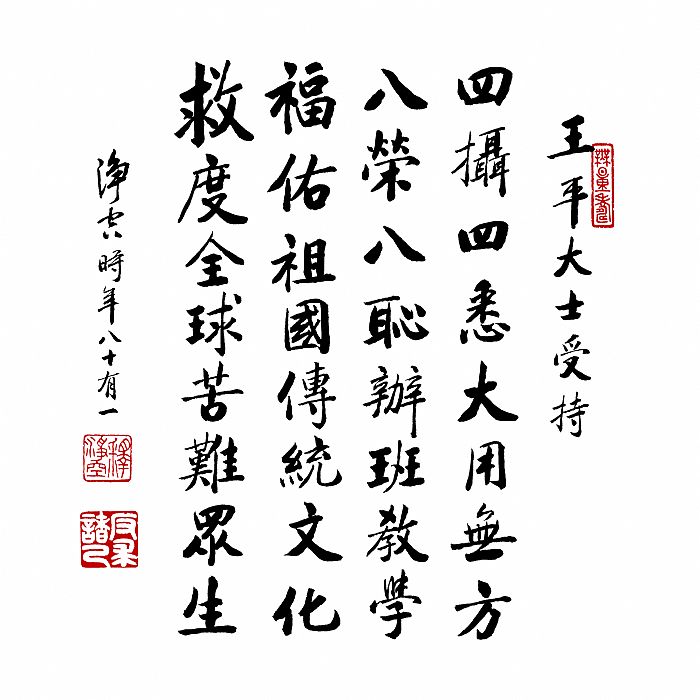 王平大士受持
四攝四悉大用無方
八榮八恥辦班教學
福佑祖國傳統文化
救度全球苦難眾生
淨空時年八十有一
釋淨空
反求諸己